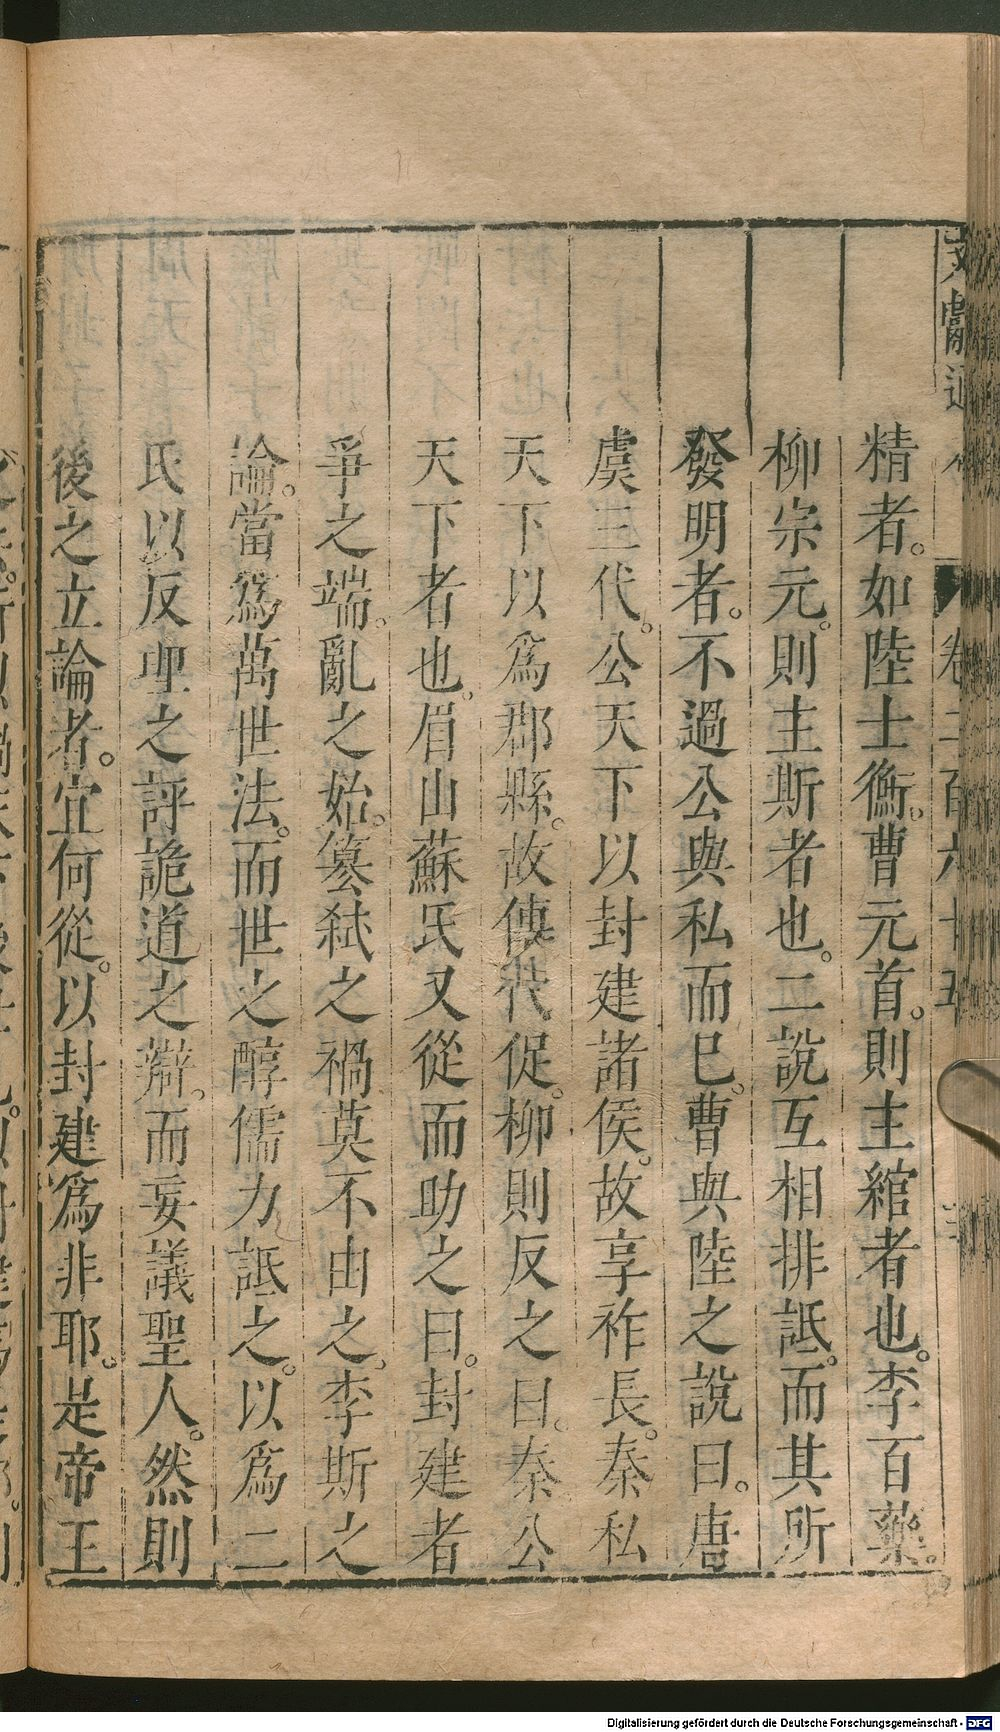 精者。如陸士衡。曹元首。則主綰者也。李百藥。
柳宗元。則主斯者也。二說互相排詆。而其所
發明者。不過公與私而已。曹與陸之說曰。唐
虞三代。公天下以封建諸侯。故享祚長。秦私
天下以爲郡縣。故傳代促。柳則反之曰。秦公
天下者也。眉山蘇氏又從而助之曰。封建者
爭之端。亂之始。篡弑之禍莫不由之。李斯之
論。當爲萬世法。而世之醇儒力詆之。以爲二
氏以反理之評詭道之辯。而妄議聖人。然則
後之立論者。宜何從。以封建爲非耶。是帝王
卷二百六十五
Digitalisierung gefördert durch die Deutsche Forschungsgemeinschaft - DFG